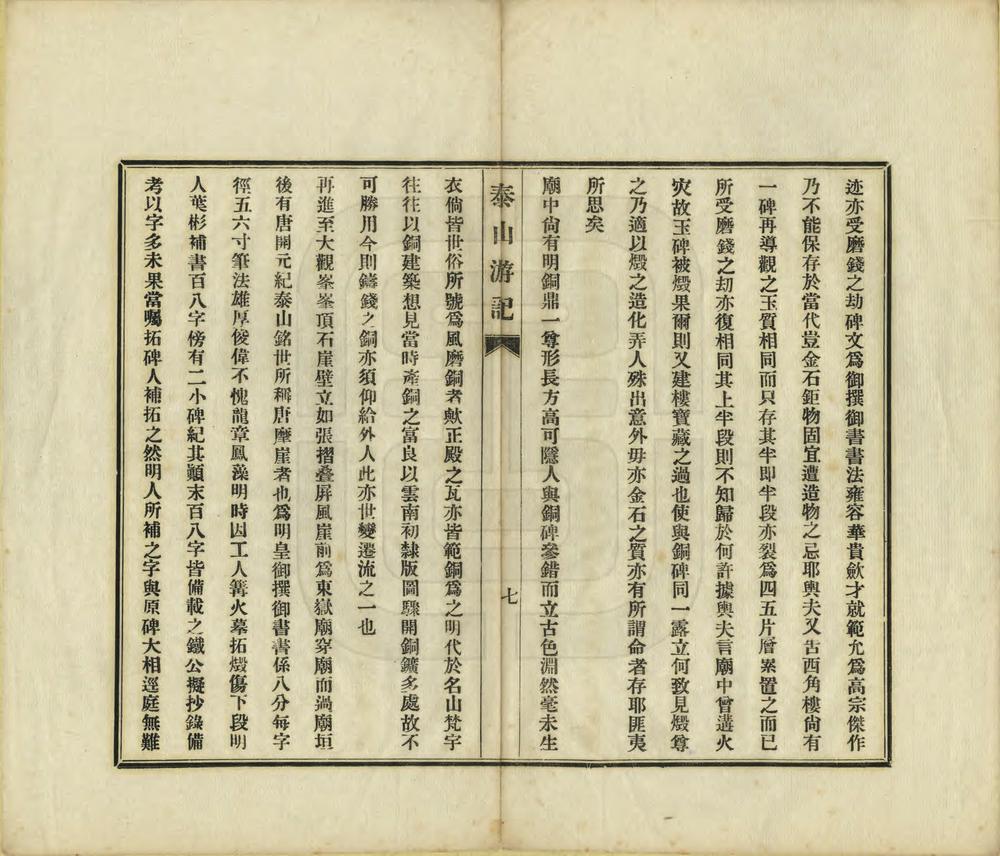 迹亦受磨錢之劫碑文爲御撰御書書法雍容華貴歛才就範允爲高宗傑作
乃不能保存於當代豈金石鉅物固宜遭造物之忌耶輿夫又告西角樓尙有
一碑再導觀之玉質相同而只存其半即半段亦裂爲四五片層累置之而已
所受磨錢之劫亦復相同其上半段則不知歸於何許據輿夫言廟中曾遘火
灾故玉碑被燬果爾則又建樓寶藏之過也使與銅碑同一露立何致見燬尊
之乃適以燬之造化弄人殊出意外毋亦金石之質亦有所謂命者存耶匪夷
所思矣
廟中尙有明銅鼎一尊形長方高可隱人與銅碑參錯而立古色淵然毫未生
泰山游記
七
衣倘皆世俗所號爲風磨銅者歟正殿之瓦亦皆範銅爲之明代於名山梵宇
往往以銅建築想見當時產銅之富良以雲南初隸版圖驟開銅鑛多處故不
可勝用今則鑄錢之銅亦須仰給外人此亦世變遷流之一也
再進至大觀峯峯頂石崖壁立如張摺疊屏風崖前爲東嶽廟穿廟而過廟垣
後有唐開元紀泰山銘世所稱唐摩崖者也爲明皇御撰御書書係八分每字
徑五六寸筆法雄厚俊偉不愧龍章鳳藻明時因工人篝火摹拓燬傷下段明
人葉彬補書百八字傍有二小碑紀其顚末百八字皆備載之鐵公擬抄錄備
考以字多未果當囑拓碑人補拓之然明人所補之字與原碑大相逕庭無難